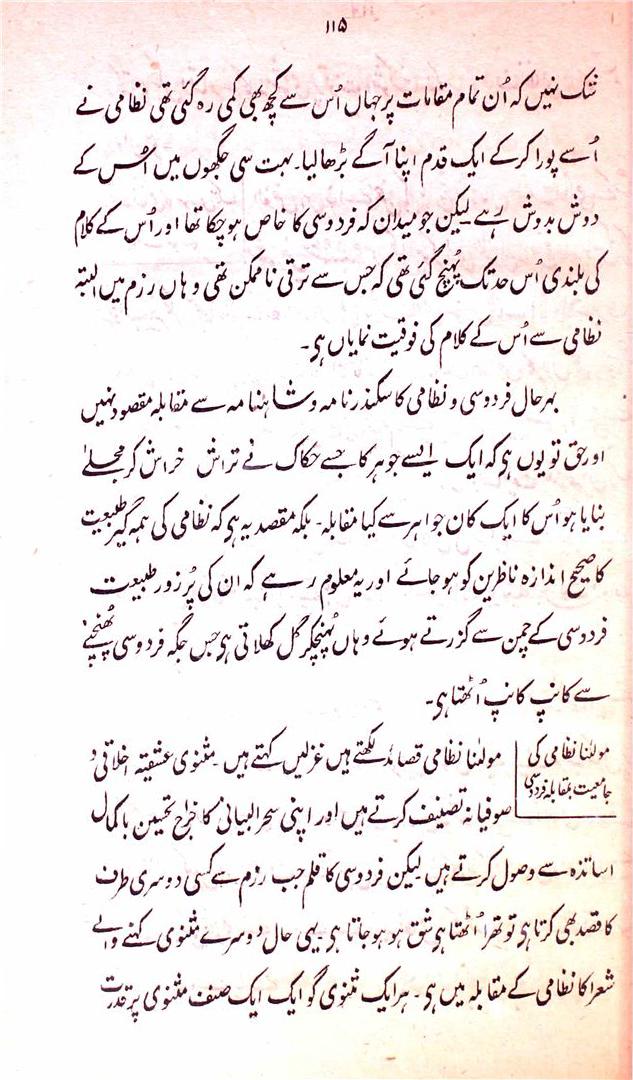 ۱۱۵
شک نہیں کہ اُن تمام مقامات پر جہاں اُس سے کچھ بھی کمی رہ گئی تھی نظامی نے
اُسے پورا کرکے ایک قدم اپنا آگے بڑھا لیا۔ بہت سی جگہوں میں اُس کے
دوش بدوش رہے لیکن جو میدان کہ فردوسی کا خاص ہو چکا تھا اور اُس کے کلام
کی بلندی اُس حد تک پُہنچ گئی تھی کہ جس سے ترقی ناممکن تھی وہاں رزم میں البتہ
نظامی سے اُس کے کلام کی فوقیت نمایاں ہی۔
بہرحال فردوسی و نظامی کا سکندر نامہ و شاہنامہ سے مقابلہ مقصود نہیں
اور حق تو یوں ہی کہ ایک ایسے جوہر کا جسے حکاک نے تراش خراش کر مجلے
بنایا ہو اُس کا ایک کان جواہر سے کیا مقابلہ۔ بلکہ مقصد یہ ہی کہ نظامی کی ہمہ گیر طبیعت
کا صحیح اندازہ ناظرین کو ہو جائے اور یہ معلوم رہے کہ ان کی پُر زور طبیعت
فردوسی کے چمن سے گزرتے ہوئے وہاں پُہنچکر گل کھلاتی ہی جس جگہ فردوسی پُہنچنے
سے کانپ کانپ اُٹھتا ہی۔
مولٰنا نظامی کی
جامعیت بمقابلہ فردوسی
مولٰنا نظامی قصائد لکھتے ہیں غزلیں کہتے ہیں۔ مثنوی عشقیہ اخلاقی و
صوفیانہ تصنیف کرتے ہیں اور اپنی سحر البیانی کا خراج تحسین باکمال
اساتذہ سے وصول کرتے ہیں لیکن فردوسی کا قلم جب رزم سے کسی دوسری طرف
کا قصد بھی کرتا ہی تو تھرا اُٹھتا ہی شق ہو ہو جاتا ہی۔ یہی حال دوسرے مثنوی کہنے والے
شعرا کا نظامی کے مقابلہ میں ہی۔ ہر ایک مثنوی گو ایک ایک صنف مثنوی پر قدرت